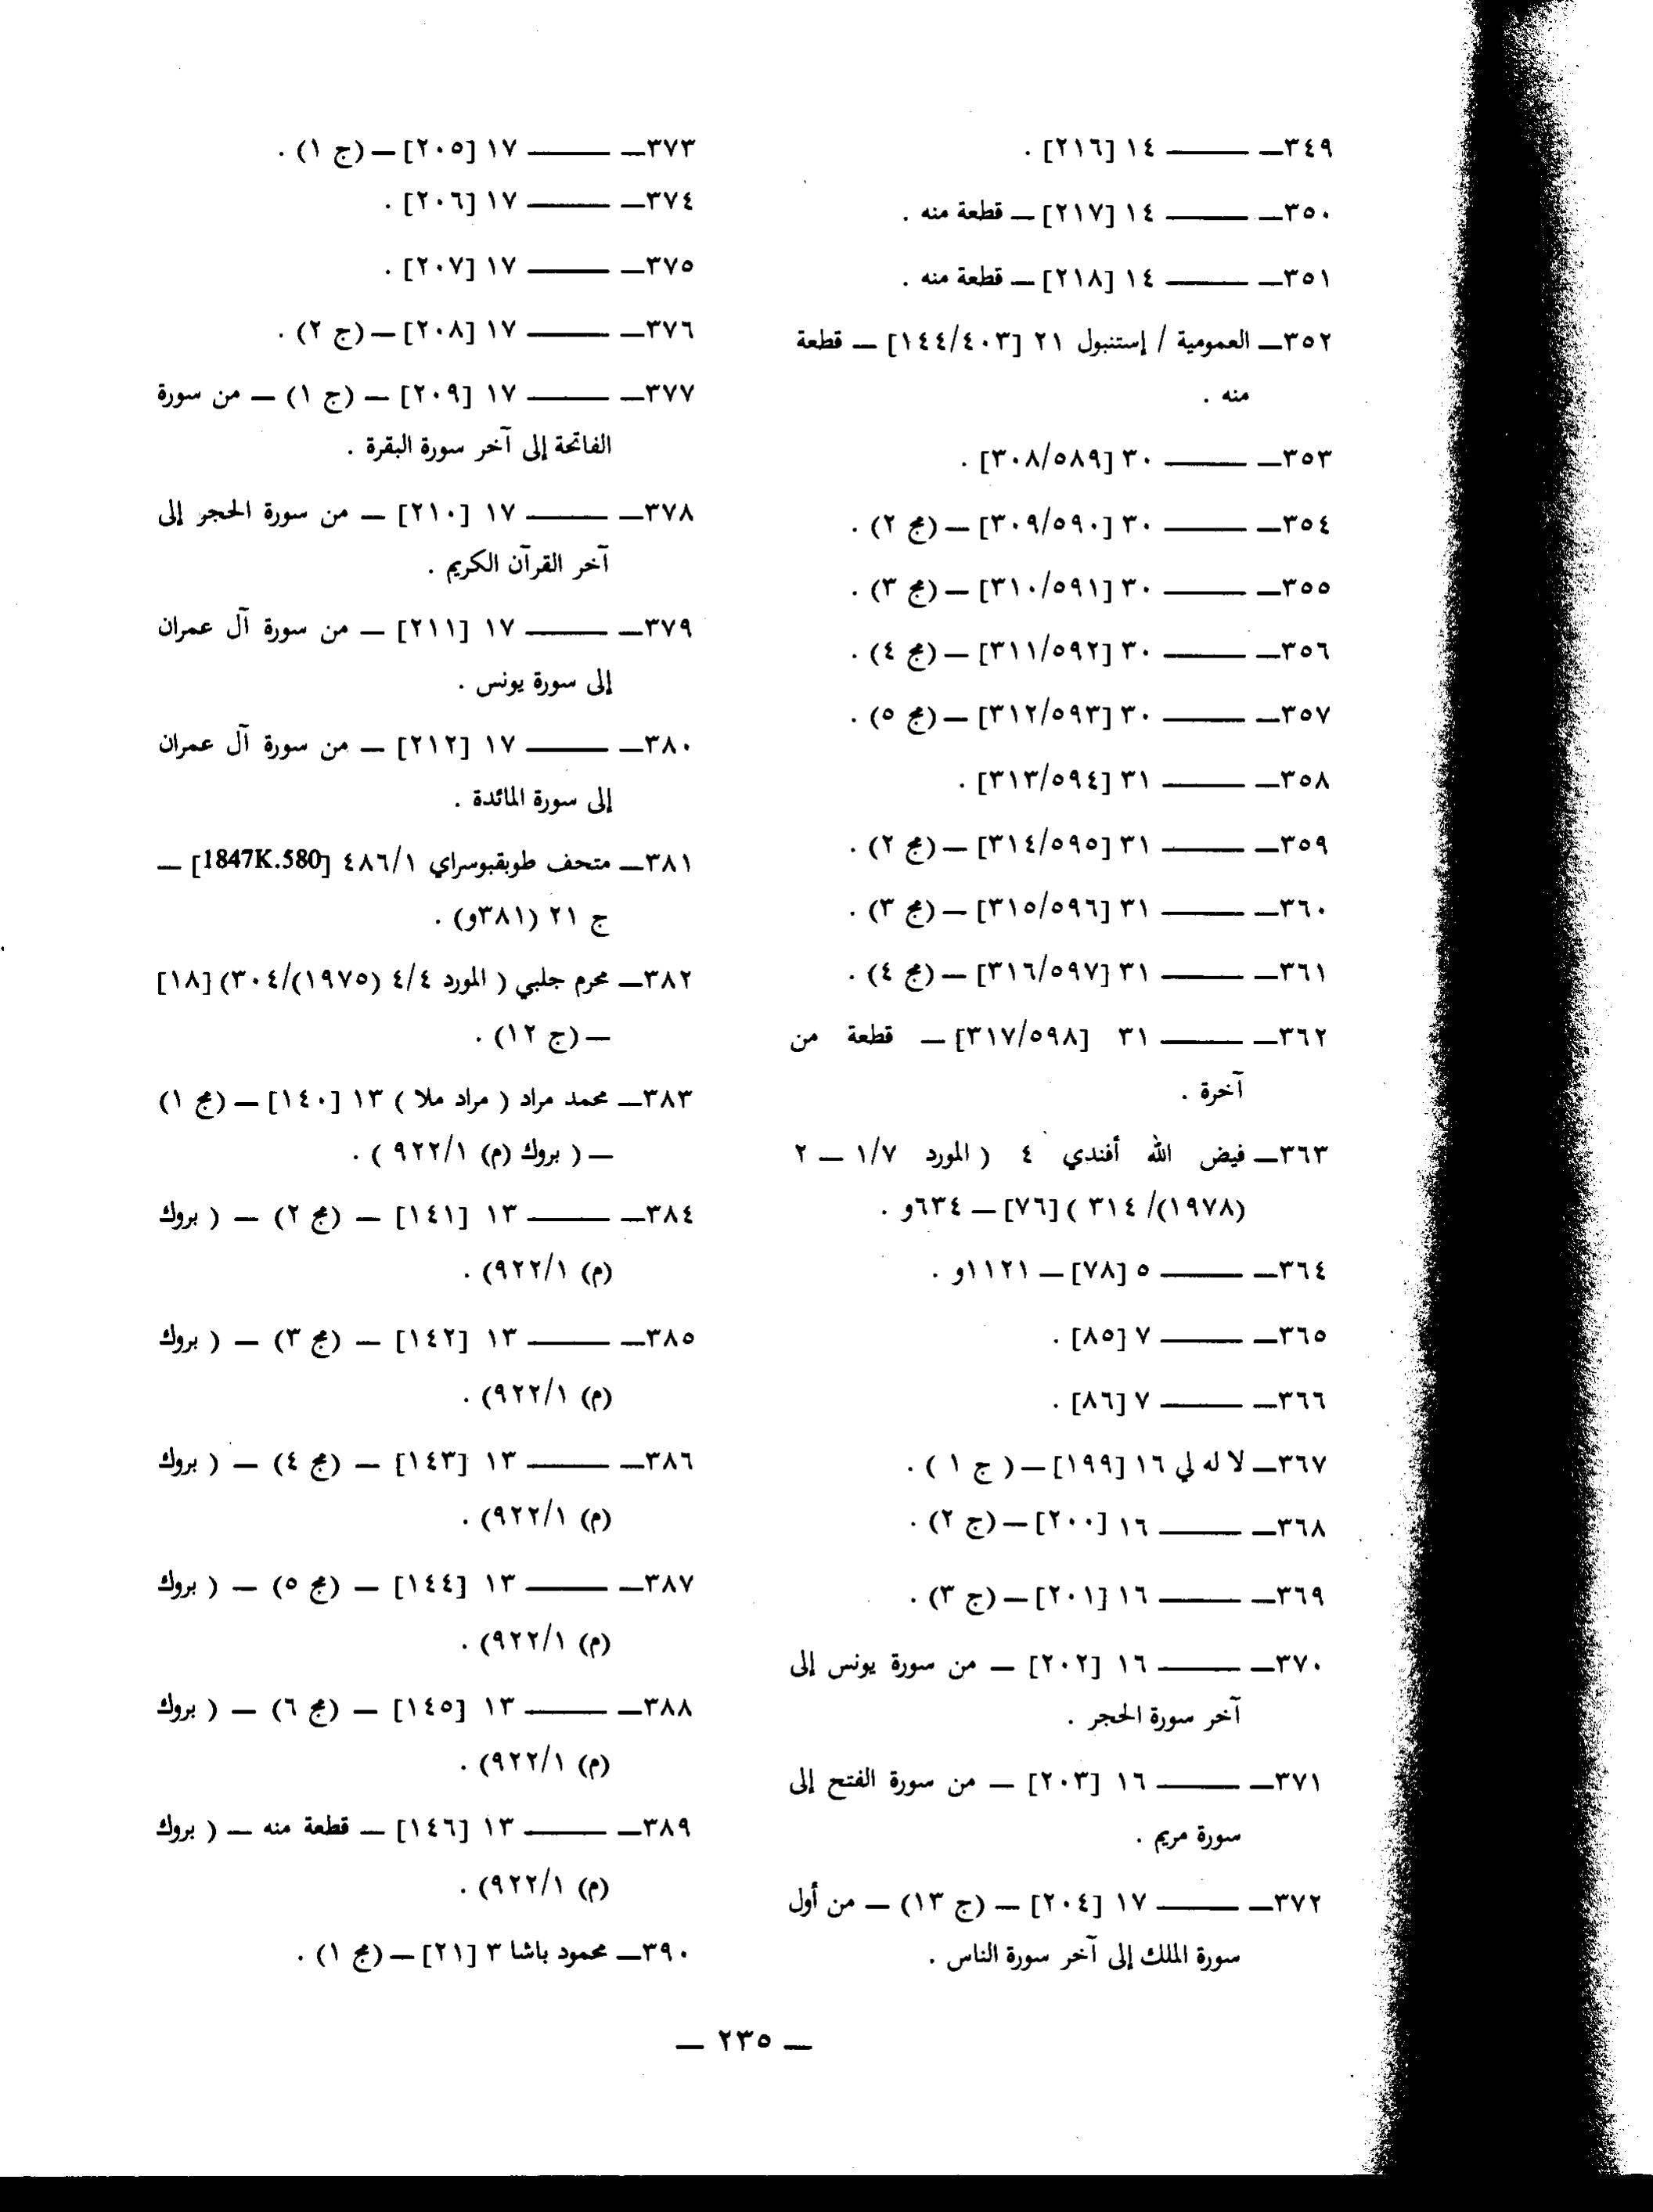 ٣٤٩ــ ــــــــ ١٤ [٢١٦] .
٣٥٠ــ ــــــــ ١٤ [٢١٧] ــ قطعة منه .
٣٥١ــ ــــــــ ١٤ [٢١٨] ــ قطعة منه .
٣٥٢ــ العمومية / إستنبول ٢١ [١٤٤/٤٠٣] ــ قطعة
منه .
٣٥٣ــ ــــــــ ٣٠ [٣٠٨/٥٨٩] .
٣٥٤ــ ــــــــ ٣٠ [٣٠٩/٥٩٠] ــ (مج ٢) .
٣٥٥ــ ــــــــ ٣٠ [٣١٠/٥٩١] ــ (مج ٣) .
٣٥٦ــ ــــــــ ٣٠ [٣١١/٥٩٢] ــ (مج ٤) .
٣٥٧ــ ــــــــ ٣٠ [٣١٢/٥٩٣] ــ (مج ٥) .
٣٥٨ــ ــــــــ ٣١ [٣١٣/٥٩٤] .
٣٥٩ــ ــــــــ ٣١ [٣١٤/٥٩٥] ــ (مج ٢) .
٣٦٠ــ ــــــــ ٣١ [٣١٥/٥٩٦] ــ (مج ٣) .
٣٦١ــ ــــــــ ٣١ [٣١٦/٥٩٧] ــ (مج ٤) .
٣٦٢ــ ــــــــ ٣١ [٣١٧/٥٩٨] ــ قطعة من
آخرة .
٣٦٣ــ فيض الله أفندي ٤ ( المورد ١/٧ ــ ٢
(١٩٧٨)/ ٣١٤ ) [٧٦] ــ ٦٣٤و .
٣٦٤ــ ــــــــ ٥ [٧٨] ــ ١١٢١و .
٣٦٥ــ ــــــــ ٧ [٨٥] .
٣٦٦ــ ــــــــ ٧ [٨٦] .
٣٦٧ــ لا له لي ١٦ [١٩٩] ــ ( ج ١ ) .
٣٦٨ــ ــــــــ ١٦ [٢٠٠] ــ (ج ٢) .
٣٦٩ــ ــــــــ ١٦ [٢٠١] ــ (ج ٣) .
٣٧٠ــ ــــــــ ١٦ [٢٠٢] ــ من سورة يونس إلى
آخر سورة الحجر .
٣٧١ــ ــــــــ ١٦ [٢٠٣] ــ من سورة الفتح إلى
سورة مريم .
٣٧٢ــ ــــــــ ١٧ [٢٠٤] ــ (ج ١٣) ــ من أول
سورة الملك إلى آخر سورة الناس .
٣٧٣ــ ــــــــ ١٧ [٢٠٥] ــ (ج ١) .
٣٧٤ــ ــــــــ ١٧ [٢٠٦] .
٣٧٥ــ ــــــــ ١٧ [٢٠٧] .
٣٧٦ــ ــــــــ ١٧ [٢٠٨] ــ (ج ٢) .
٣٧٧ــ ــــــــ ١٧ [٢٠٩] ــ (ج ١) ــ من سورة
الفاتحة إلى آخر سورة البقرة .
٣٧٨ــ ــــــــ ١٧ [٢١٠] ــ من سورة الحجر إلى
آخر القرآن الكريم .
٣٧٩ــ ــــــــ ١٧ [٢١١] ــ من سورة آل عمران
إلى سورة يونس .
٣٨٠ــ ــــــــ ١٧ [٢١٢] ــ من سورة آل عمران
إلى سورة المائدة .
٣٨١ــ متحف طوبقبوسراي ٤٨٦/١ [1847K.580] ــ
ج ٢١ (٣٨١و) .
٣٨٢ــ محرم جلبي ( المورد ٤/٤ (١٩٧٥)/٣٠٤) [١٨]
ــ (ج ١٢) .
٣٨٣ــ محمد مراد ( مراد ملا ) ١٣ [١٤٠] ــ (مج ١)
ــ ( بروك (م) ٩٢٢/١ ) .
٣٨٤ــ ــــــــ ١٣ [١٤١] ــ (مج ٢) ــ ( بروك
(م) ٩٢٢/١) .
٣٨٥ــ ــــــــ ١٣ [١٤٢] ــ (مج ٣) ــ ( بروك
(م) ٩٢٢/١) .
٣٨٦ــ ــــــــ ١٣ [١٤٣] ــ (مج ٤) ــ ( بروك
(م) ٩٢٢/١) .
٣٨٧ــ ــــــــ ١٣ [١٤٤] ــ (مج ٥) ــ ( بروك
(م) ٩٢٢/١) .
٣٨٨ــ ــــــــ ١٣ [١٤٥] ــ (مج ٦) ــ ( بروك
(م) ٩٢٢/١) .
٣٨٩ــ ــــــــ ١٣ [١٤٦] ــ قطعة منه ــ ( بروك
(م) ٩٢٢/١) .
٣٩٠ــ محمود باشا ٣ [٢١] ــ (مج ١) .
ــ ٢٣٥ ــ